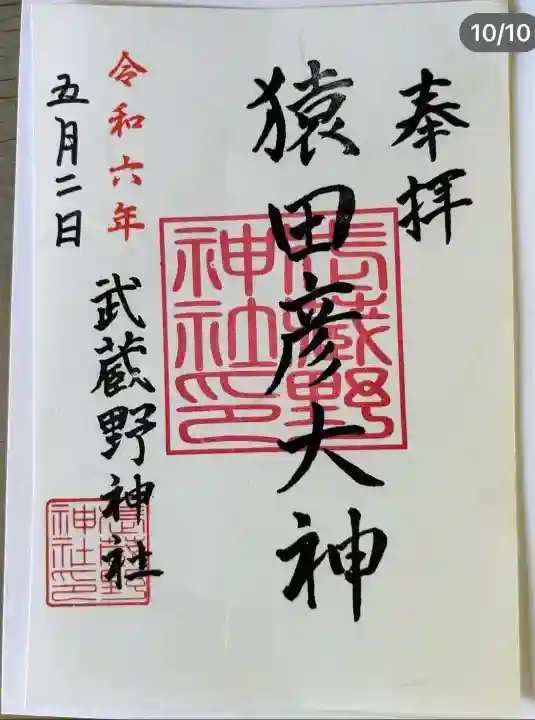 10/10
奉拝
猿田彦大神
武蔵野神社印
令和六年
五月二日
武蔵野神社
武蔵野神社印